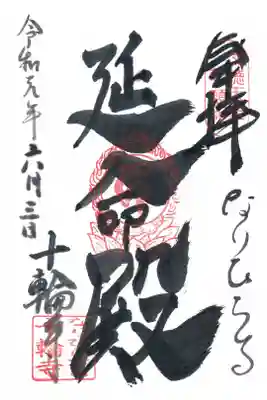 奉拝
なりひら寺
延命殿
令和元年六月三日
十輪寺